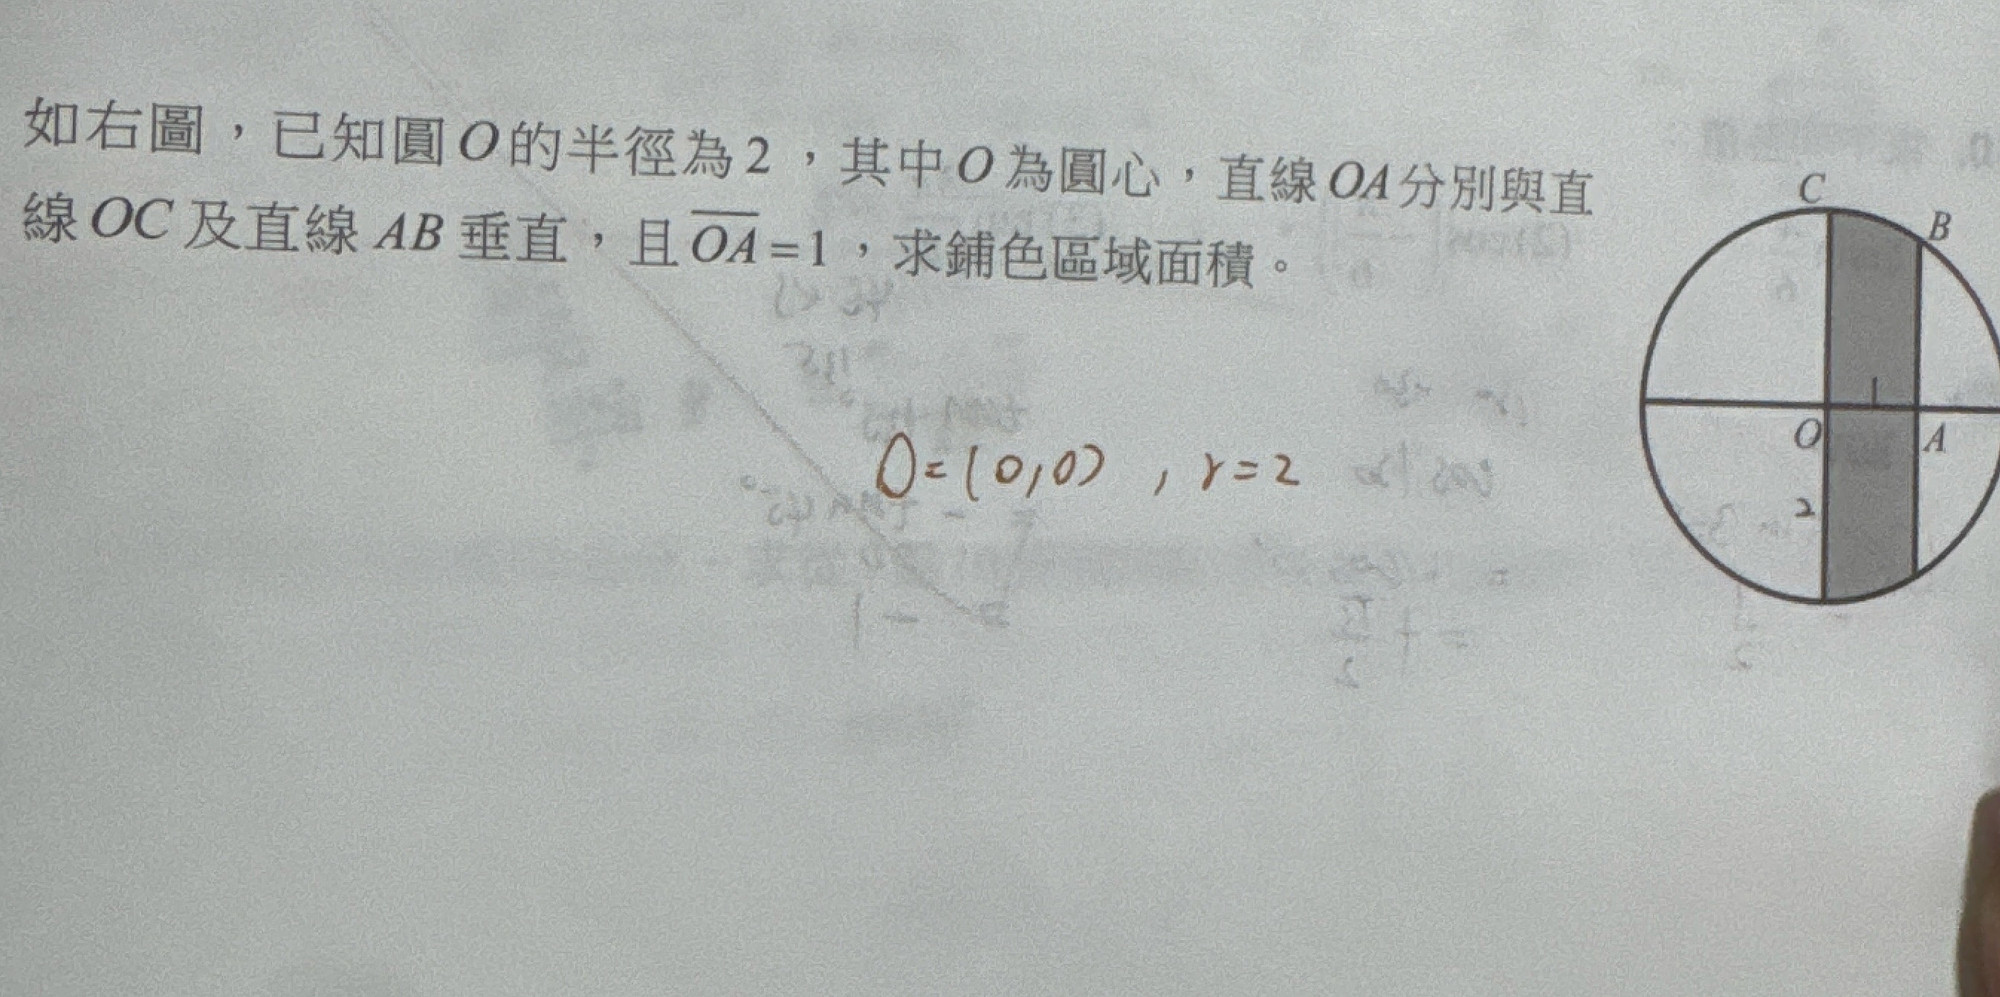 如右圖，已知圓O的半徑為2，其中O為圓心，直線OA分別與直
線OC及直線AB垂直，且\overline{OA}=1，求鋪色區域面積。
C
B
1
O
A
2
O=(0,0) , r=2